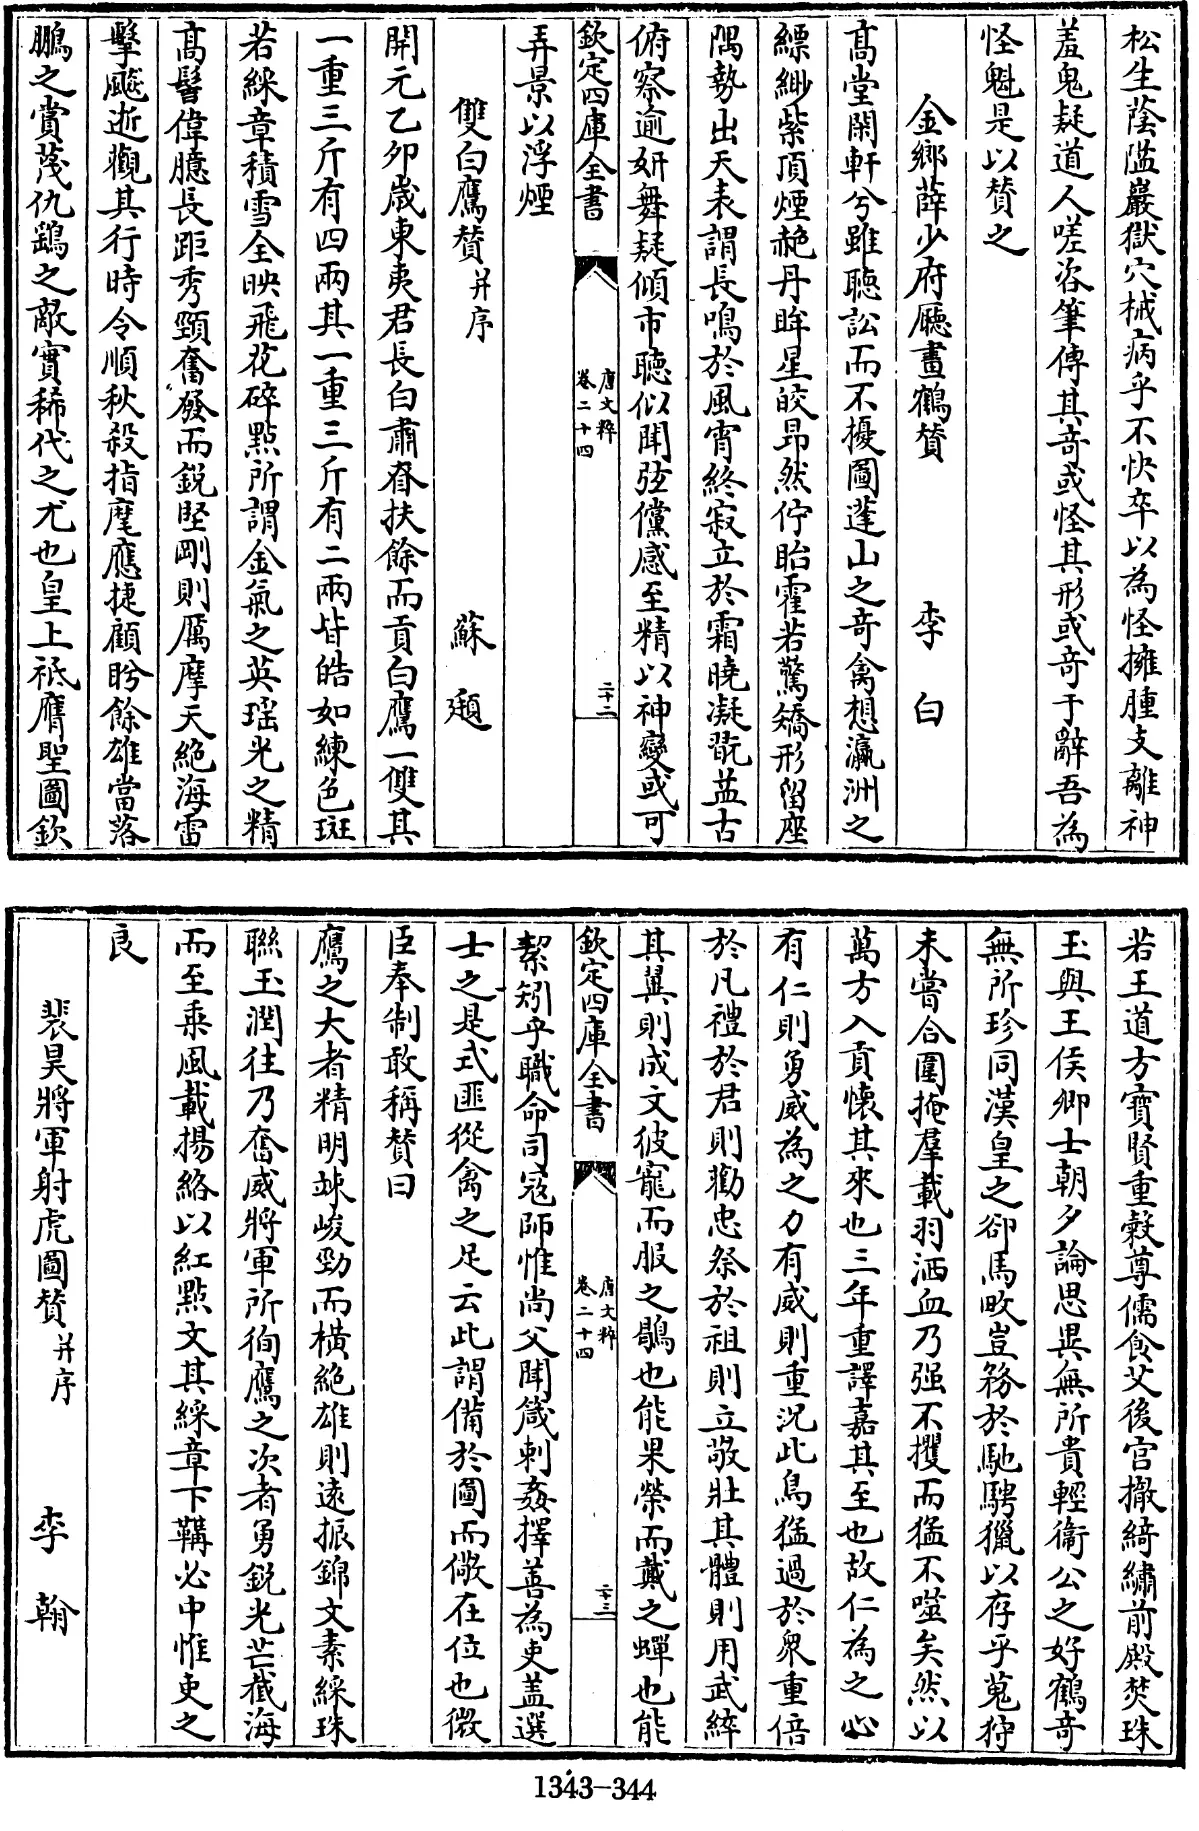 松生蔭隘巖獄穴械病乎不快卒以為怪擁腫支離神
羞鬼疑道人嗟咨筆傳其奇或怪其形或奇于辭吾為
怪魁是以賛之
金鄉薛少府廳畫鶴賛 李白
高堂閑軒兮雖聽訟而不擾圖蓬山之奇禽想瀛洲之
縹緲紫頂煙赩丹眸星皎昂然佇眙霍若驚矯形留座
隅勢出天表謂長鳴於風宵終寂立於霜曉凝翫益古
俯察逾妍舞疑傾市聽似聞弦儻感至精以神變或可
欽定四庫全書 唐文粹 卷二十四 二十二
弄景以浮煙
雙白鷹賛并序 蘇頲
開元乙卯歲東夷君長自肅眘扶餘而貢白鷹一雙其
一重三斤有四兩其一重三斤有二兩皆皓如練色斑
若綵章積雪全映飛花碎點所謂金氣之英瑶光之精
高髻偉臆長距秀頸奮發而鋭堅剛則厲摩天絶海雷
擊飈逝觀其行時令順秋殺指麾應捷顧盼餘雄當落
鵬之賞蔑仇鶚之敵實稀代之尤也皇上祗膺聖圖欽
若王道方寳賢重穀尊儒食艾後宫撤綺繡前殿焚珠
玉與王侯卿士朝夕論思異無所貴輕衞公之好鶴奇
無所珍同漢皇之卻馬畋豈務於馳騁獵以存乎蒐狩
未嘗合圍掩羣載羽洒血乃强不攫而猛不噬矣然以
萬方入貢懷其來也三年重譯嘉其至也故仁為之心
有仁則勇威為之力有威則重况此鳥猛過於衆重倍
於凡禮於君則勸忠祭於祖則立敬壯其體則用武綷
其翼則成文彼寵而服之鶡也能果榮而戴之蟬也能
欽定四庫全書 唐文粹 卷二十四 二十三
絜矧乎職命司宼師惟尚父聞箴刺姦擇善為吏盖選
士之是式匪從禽之足云此謂備於圖而儆在位也微
臣奉制敢稱賛曰
鷹之大者精明竦峻勁而横絶雄則遠振錦文素綵珠
聯玉潤往乃奮威將軍所徇鷹之次者勇鋭光芒截海
而至乘風載揚絡以紅點文其綵章下鞲必中惟吏之
良
裴旻將軍射虎圖賛并序 李翰
1343-344